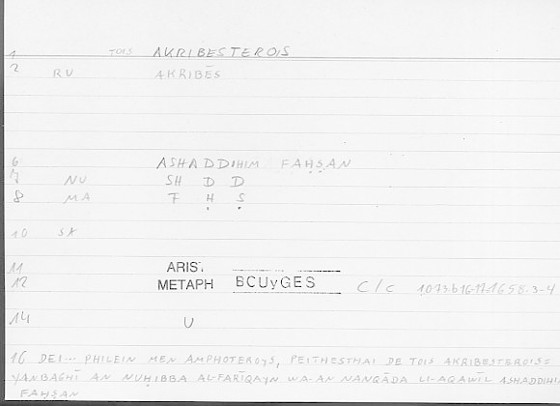 1 TOIS AKRIBESTEROIS
2 RU AKRIBĒS
6 ASHADDIHIM FAḤṢAN
7 NU SH D D
8 MA F Ḥ Ṣ
10 SX
11 ARIS.
12 METAPH BOUyGES C/C 1073b16-17/1658.3-4
14 U
16 DEI... PHILEIN MEN AMPHOTEROYS, PEITHESTHAI DE TOIS AKRIBESTEROIS=
YANBAGHĪ AN NUḤIBBA AL-FARĪQAYN WA-AN NANQĀDA LI-AQĀWĪL ASHADDIHI
FAḤṢAN